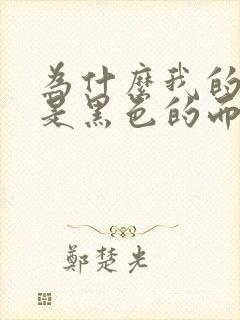 為什麼我的
是黑色的而
鄭楚光